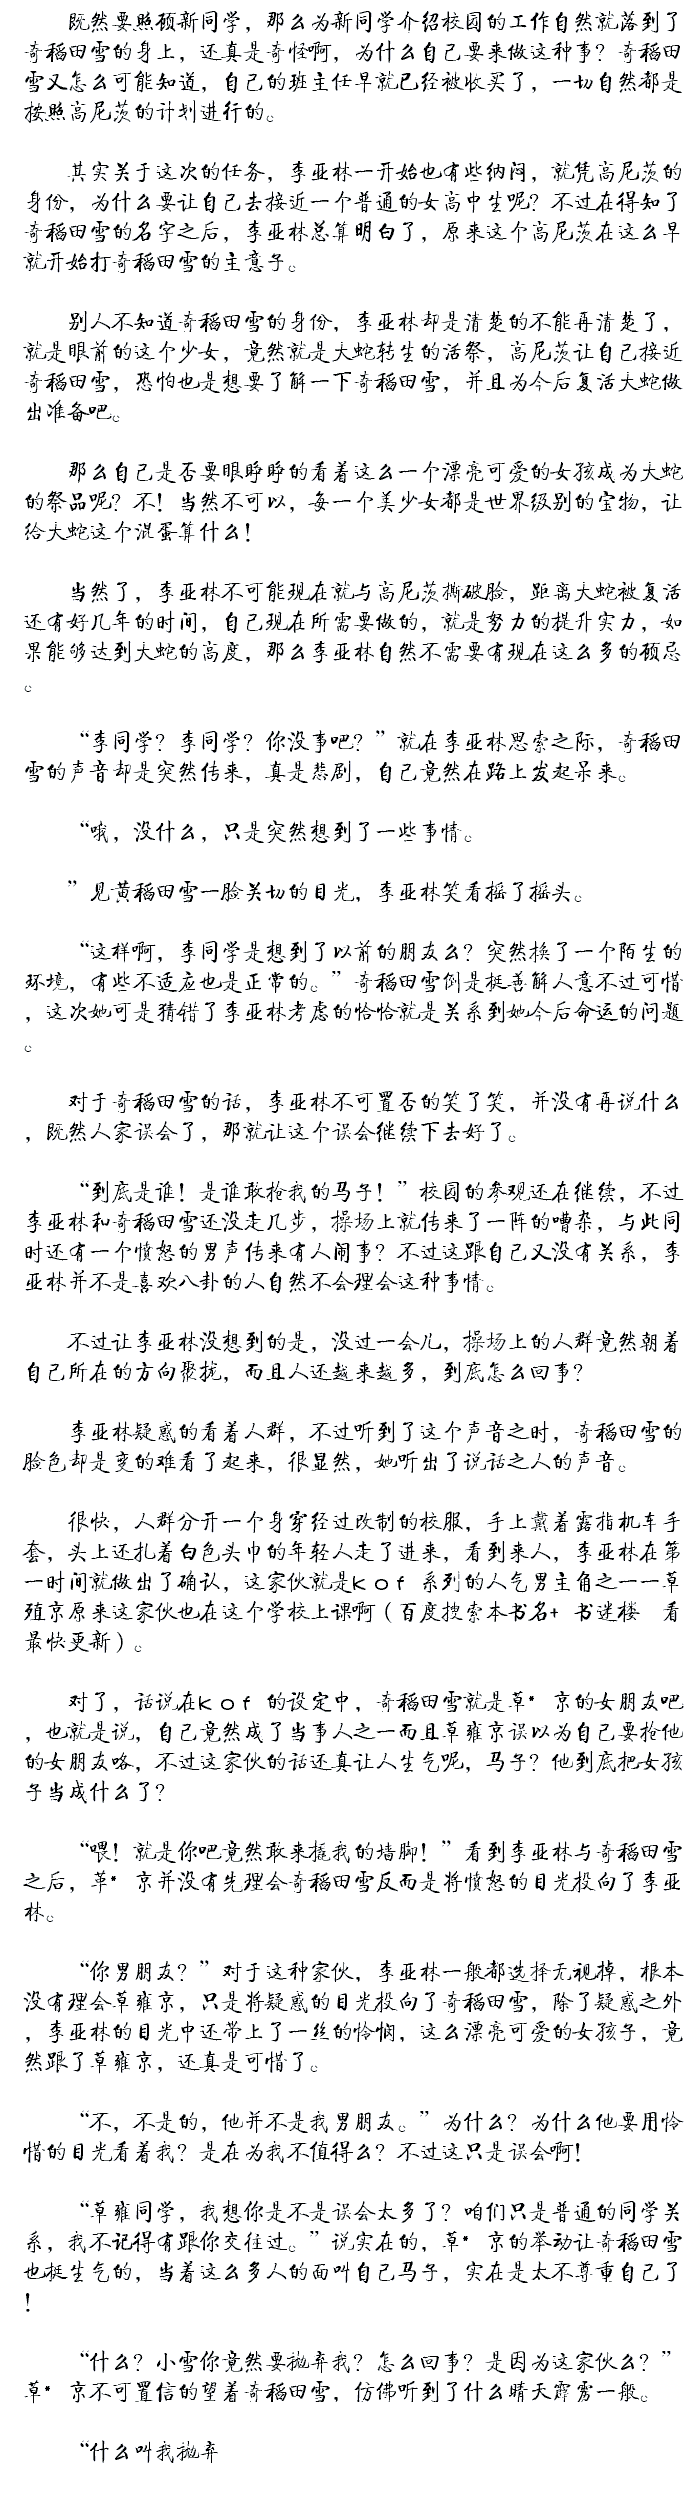 既然要照顾新同学，那么为新同学介绍校园的工作自然就落到了
奇稻田雪的身上，还真是奇怪啊，为什么自己要来做这种事？奇稻田
雪又怎么可能知道，自己的班主任早就已经被收买了，一切自然都是
按照高尼茨的计划进行的。
其实关于这次的任务，李亚林一开始也有些纳闷，就凭高尼茨的
身份，为什么要让自己去接近一个普通的女高中生呢？不过在得知了
奇稻田雪的名字之后，李亚林总算明白了，原来这个高尼茨在这么早
就开始打奇稻田雪的主意子。
别人不知道奇稻田雪的身份，李亚林却是清楚的不能再清楚了，
就是眼前的这个少女，竟然就是大蛇转生的活祭，高尼茨让自己接近
奇稻田雪，恐怕也是想要了解一下奇稻田雪，并且为今后复活大蛇做
出准备吧。
那么自己是否要眼睁睁的看着这么一个漂亮可爱的女孩成为大蛇
的祭品呢？不！当然不可以，每一个美少女都是世界级别的宝物，让
给大蛇这个混蛋算什么！
当然了，李亚林不可能现在就与高尼茨撕破脸，距离大蛇被复活
还有好几年的时间，自己现在所需要做的，就是努力的提升实力，如
果能够达到大蛇的高度，那么李亚林自然不需要有现在这么多的顾忌
。
“李同学？李同学？你没事吧？”就在李亚林思索之际，奇稻田
雪的声音却是突然传来，真是悲剧，自己竟然在路上发起呆来。
“哦，没什么，只是突然想到了一些事情。
”见黄稻田雪一脸关切的目光，李亚林笑看摇了摇头。
“这样啊，李同学是想到了以前的朋友么？突然换了一个陌生的
环境，有些不适应也是正常的。”奇稻田雪倒是挺善解人意不过可惜
，这次她可是猜错了李亚林考虑的恰恰就是关系到她今后命运的问题
。
对于奇稻田雪的话，李亚林不可置否的笑了笑，并没有再说什么
，既然人家误会了，那就让这个误会继续下去好了。
“到底是谁！是谁敢抢我的马子！”校园的参观还在继续，不过
李亚林和奇稻田雪还没走几步，操场上就传来了一阵的嘈杂，与此同
时还有一个愤怒的男声传来有人闹事？不过这跟自己又没有关系，李
亚林并不是喜欢八卦的人自然不会理会这种事情。
不过让李亚林没想到的是，没过一会儿，操场上的人群竟然朝着
自己所在的方向聚拢，而且人还越来越多，到底怎么回事？
李亚林疑惑的看着人群，不过听到了这个声音之时，奇稻田雪的
脸色却是变的难看了起来，很显然，她听出了说话之人的声音。
很快，人群分开一个身穿经过改制的校服，手上戴着露指机车手
套，头上还扎着白色头巾的年轻人走了进来，看到来人，李亚林在第
一时间就做出了确认，这家伙就是Kof系列的人气男主角之一一草
殖京原来这家伙也在这个学校上课啊（百度搜索本书名+ 书迷楼 看
最快更新）。
对了，话说在Kof的设定中，奇稻田雪就是草* 京的女朋友吧
，也就是说，自己竟然成了当事人之一而且草雍京误以为自己要抢他
的女朋友咯，不过这家伙的话还真让人生气呢，马子？他到底把女孩
子当成什么了？
“喂！就是你吧竟然敢来撬我的墙脚！”看到李亚林与奇稻田雪
之后，草* 京并没有先理会奇稻田雪反而是将愤怒的目光投向了李亚
林。
“你男朋友？”对于这种家伙，李亚林一般都选择无视掉，根本
没有理会草雍京，只是将疑惑的目光投向了奇稻田雪，除了疑惑之外
，李亚林的目光中还带上了一丝的怜悯，这么漂亮可爱的女孩子，竟
然跟了草雍京，还真是可惜了。
“不，不是的，他并不是我男朋友。”为什么？为什么他要用怜
惜的目光看着我？是在为我不值得么？不过这只是误会啊！
“草雍同学，我想你是不是误会太多了？咱们只是普通的同学关
系，我不记得有跟你交往过。”说实在的，草* 京的举动让奇稻田雪
也挺生气的，当着这么多人的面叫自己马子，实在是太不尊重自己了
！
“什么？小雪你竟然要抛弃我？怎么回事？是因为这家伙么？”
草* 京不可置信的望着奇稻田雪，仿佛听到了什么晴天霹雳一般。
“什么叫我抛弃